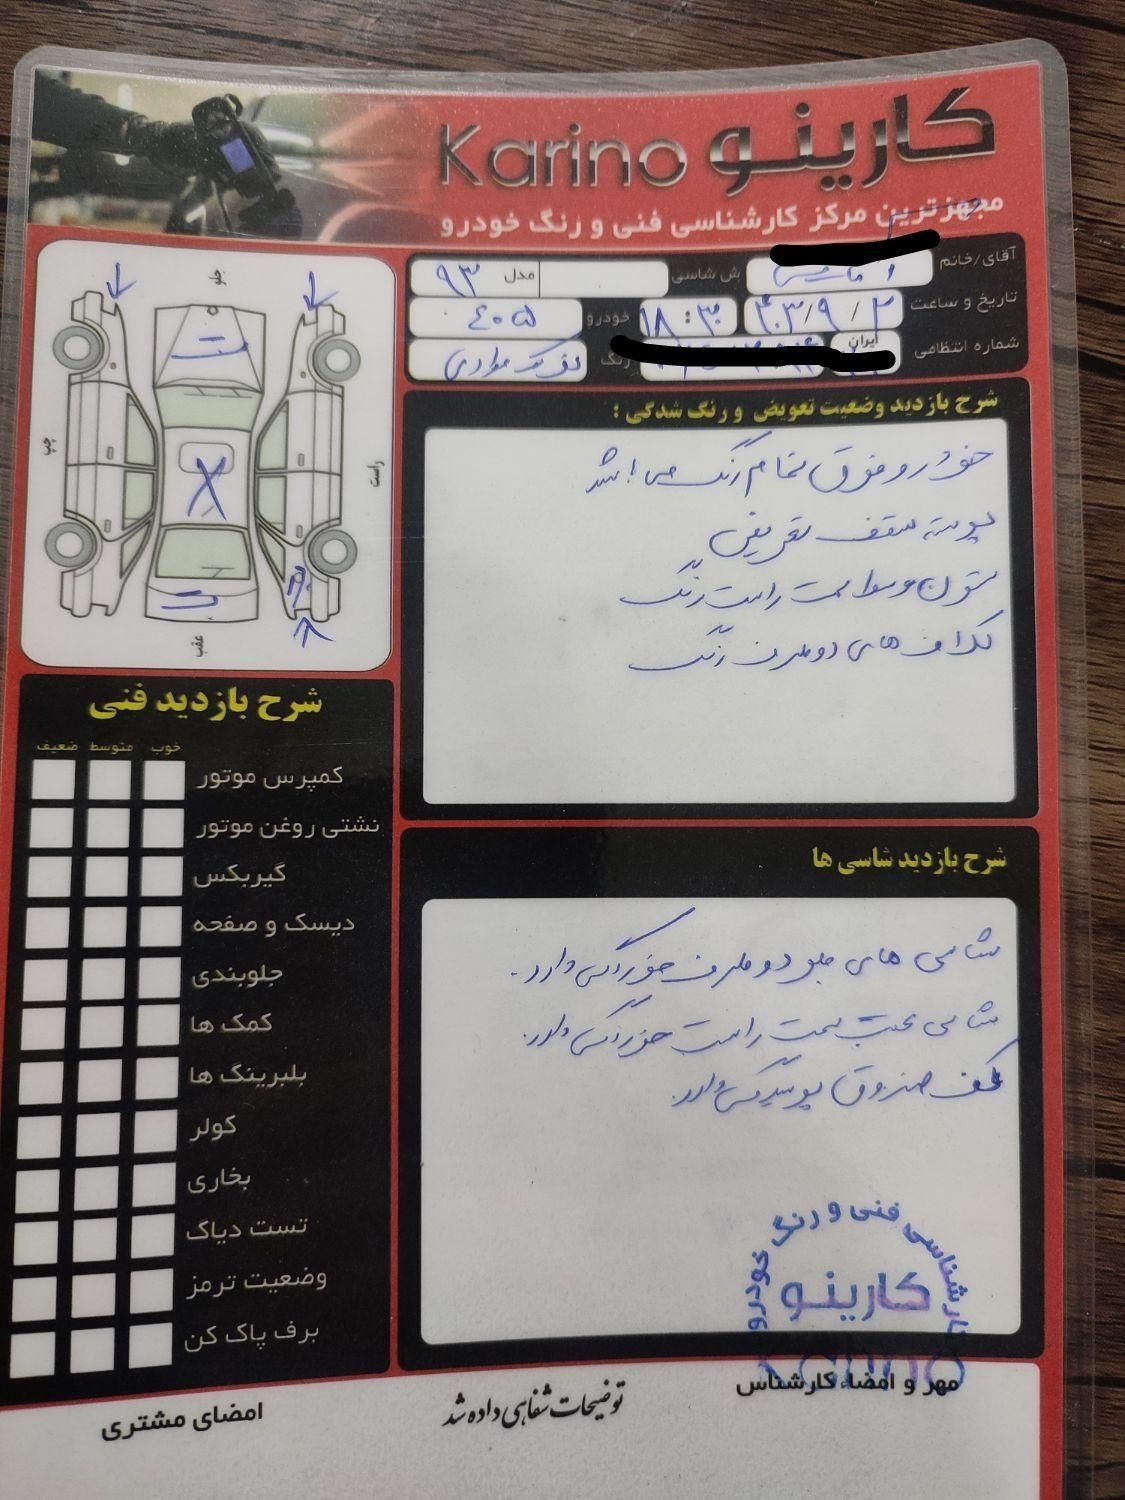 Karino کارینو
مجهزترین مرکز کارشناسی فنی و رنگ خودرو
آقای/خانم
ش شاسی
مدل ۹۳
تاریخ و ساعت ۴۰۳/۹/۲ ۱۸:۳۰
خودرو ۴۰۵
شماره انتظامی ایران
رنگ
جلو
چپ
راست
عقب
شرح بازدید وضعیت تعویض و رنگ شدگی :
خودرو فوق تمام رنگ می باشد
پوسته سقف تعویض
ستون وسط سمت راست رنگ
کلاف های دو طرف رنگ
شرح بازدید فنی
خوب متوسط ضعیف
کمپرس موتور
نشتی روغن موتور
گیربکس
دیسک و صفحه
جلوبندی
کمک ها
بلبرینگ ها
کولر
بخاری
تست دیاگ
وضعیت ترمز
برف پاک کن
شرح بازدید شاسی ها
شاسی های جلو دو طرف خوردگی دارد.
شاسی عقب سمت راست خوردگی دارد.
کف صندوق پوسیدگی دارد.
کارشناسی فنی و رنگ خودرو
کارینو
Karino
مهر و امضاء کارشناس
توضیحات شفاهی داده شد
امضای مشتری